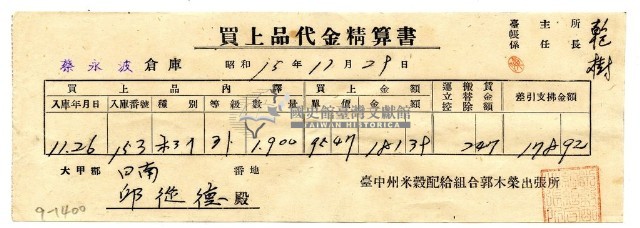 買上品代金精算書
臺帳係 主任 所長 乾樹
蔡永波倉庫
昭和15年12月29日
買上品內譯 買上金額 運搬賃立替金控除額 差引支拂金額
入庫年月日 入庫番號 種別 等級 數量 單價 金額
11.26 153 1.900 9547 18139 247 17892
大甲郡 日南 番地
邱 德 殿
臺中州米穀配給組合郭木榮出張所
國史館臺灣文獻館
TAIWAN HISTORICA
9-1400